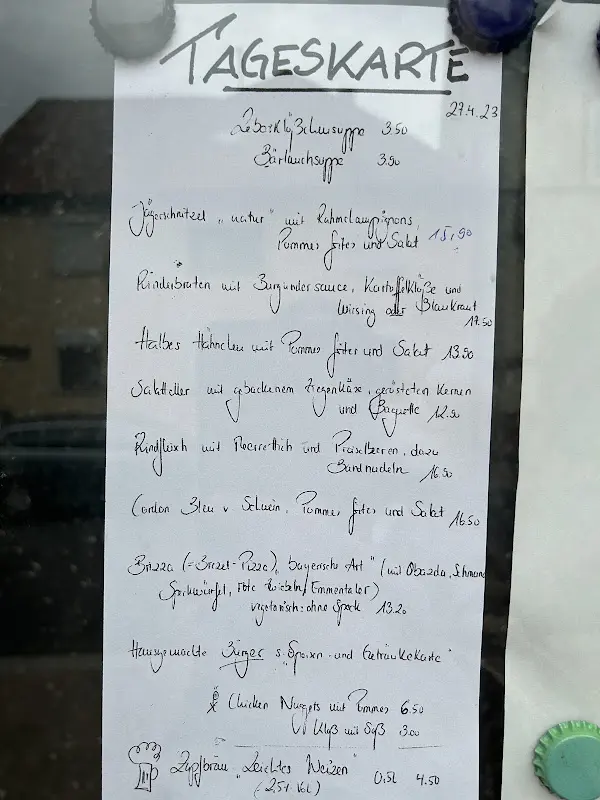 TAGESKARTE
27.4.23
Leberklößchensuppe 3.50
Bärlauchsuppe 3.90
Jägerschnitzel „natur" mit Rahmchampignons,
Pommes frites und Salat 15,90
Rinderbraten mit Burgundersauce, Kartoffelklöße und
Wirsing oder Blaukraut
17.50
Halbes Hähnchen mit Pommes frites und Salat 13.90
Salatteller mit gebackenem Ziegenkäse, gerösteten Kernen
und Baguette 12.90
Rindfleisch mit Meerrettich und Preiselbeeren, dazu
Bandnudeln 16.90
Cordon Bleu v. Schwein, Pommes frites und Salat 16.50
Brizza (=Brezel-Pizza) „bayerische Art" (mit Obazda, Schmand
Speckwürfel, rote Zwiebeln, Emmentaler)
vegetarisch: ohne Speck 13.20
Hausgemachte Burger s. „Speisen- und Getränkekarte"
Chicken Nuggets mit Pommes 6.50
Kloß mit Soß 3.00
Zipfbräu „Leichtes Weizen" 0,5l 4.50
(2,5% Vol.)